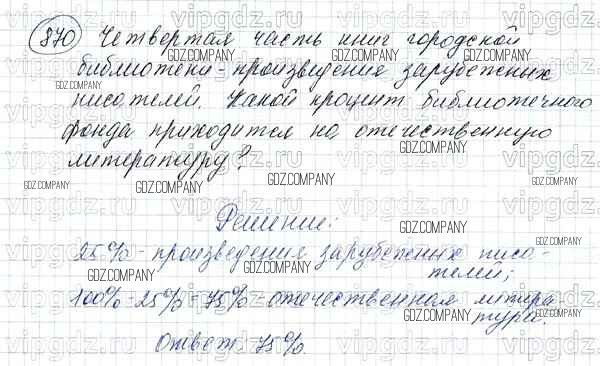 870 Четвертая часть книг городской
библиотеки - произведение зарубежных
писателей. Какой процент библиотечного
фонда приходится на отечественную
литературу?
Решение:
25% - произведения зарубежных писа-
телей;
100% - 25% = 75% отечественная литера
тура.
Ответ: 75%.